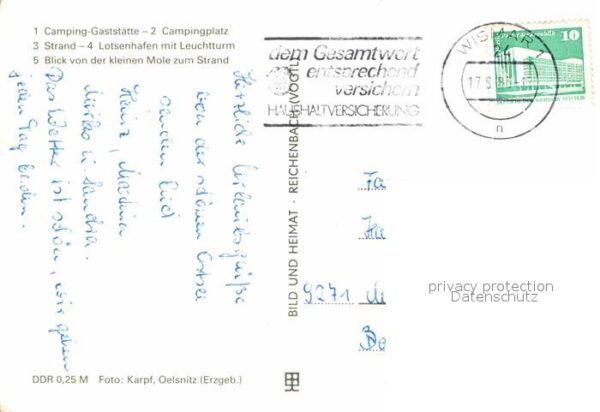 1 Camping-Gaststätte – 2 Campingplatz
3 Strand – 4 Lotsenhafen mit Leuchtturm
5 Blick von der kleinen Mole zum Strand
Herzliche Urlaubsgrüße
von der schönen Ostsee
senden Euch
Heinz, Martina
Mirko u. Sandra.
Das Wetter ist schön, wir gehen
jeden Tag baden.
DDR 0,25 M Foto: Karpf, Oelsnitz (Erzgeb.)
BILD UND HEIMAT · REICHENBACH (VOGTL
dem Gesamtwert
entsprechend
versichern
HAUSHALTVERSICHERUNG
WISMAR 1
24
17.8.8
n
10
Fa
9271
privacy protection
Datenschutz